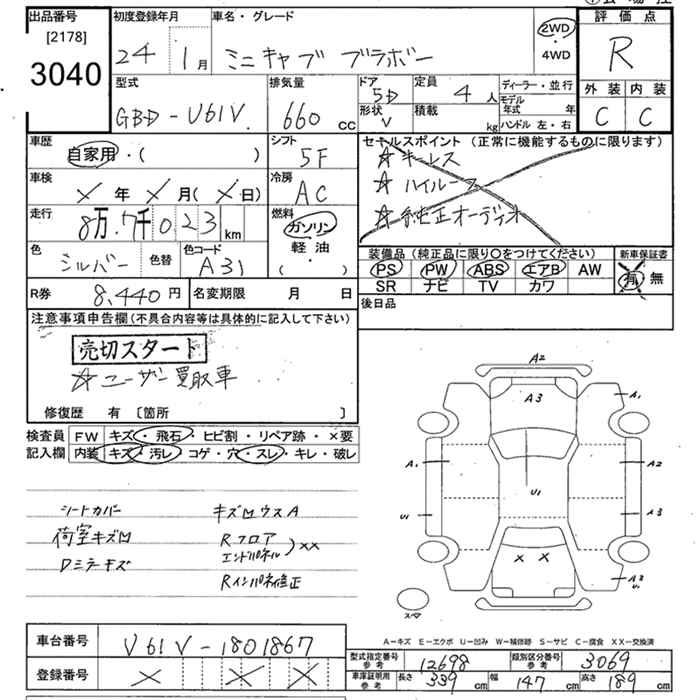 出品番号
[2178]
3040
初度登録年月
24 1月
車名・グレード
ミニキャブ ブラボー
2WD
・
4WD
評価点
R
外装 内装
C C
型式
GBD-U61V.
排気量
660 cc
ドア
5D
形状
V
定員
4人
積載
kg
ディーラー・並行
モデル年式 年
ハンドル 左・右
車歴
自家用・( )
シフト
5F
セールスポイント(正常に機能するものに限ります)
☆キーレス
☆ハイルーフ
☆純正オーディオ
車検
X年X月(X日)
冷房
AC
走行
8万7千023km
燃料
ガソリン
軽・油
( ・ )
色
シルバー
色替
色コード
A31
装備品(純正品に限り○をつけてください)
PS PW ABS エアB AW
SR ナビ TV カワ
新車保証書
有 無
R券 8,440円
名変期限 月 日
後日品
注意事項申告欄(不具合内容等は具体的に記入して下さい)
売切スタート
☆ユーザー買取車
修復歴 有 〔箇所 〕
検査員 FW キズ・飛石・ヒビ割・リペア跡・×要
記入欄 内装 キズ・汚レ・コゲ・穴・スレ・キレ・破レ
シートカバー
荷室キズ凹
Dミラーキズ
キズ凹ウスA
Rフロア
エンドパネル
)××
Rインパネ修正
A2
A3
A1
A1
A2
U1
U1
A3
××
A2
U1
スペア
A-キズ E-エクボ U-凹み W-補修跡 S-サビ C-腐食 XX-交換済
車台番号
V61V-1801867
登録番号
X X X
型式指定番号
参考
12698
類別区分番号
参考
3069
車庫証明用
参考
長さ 339cm
幅 147cm
高さ 189cm